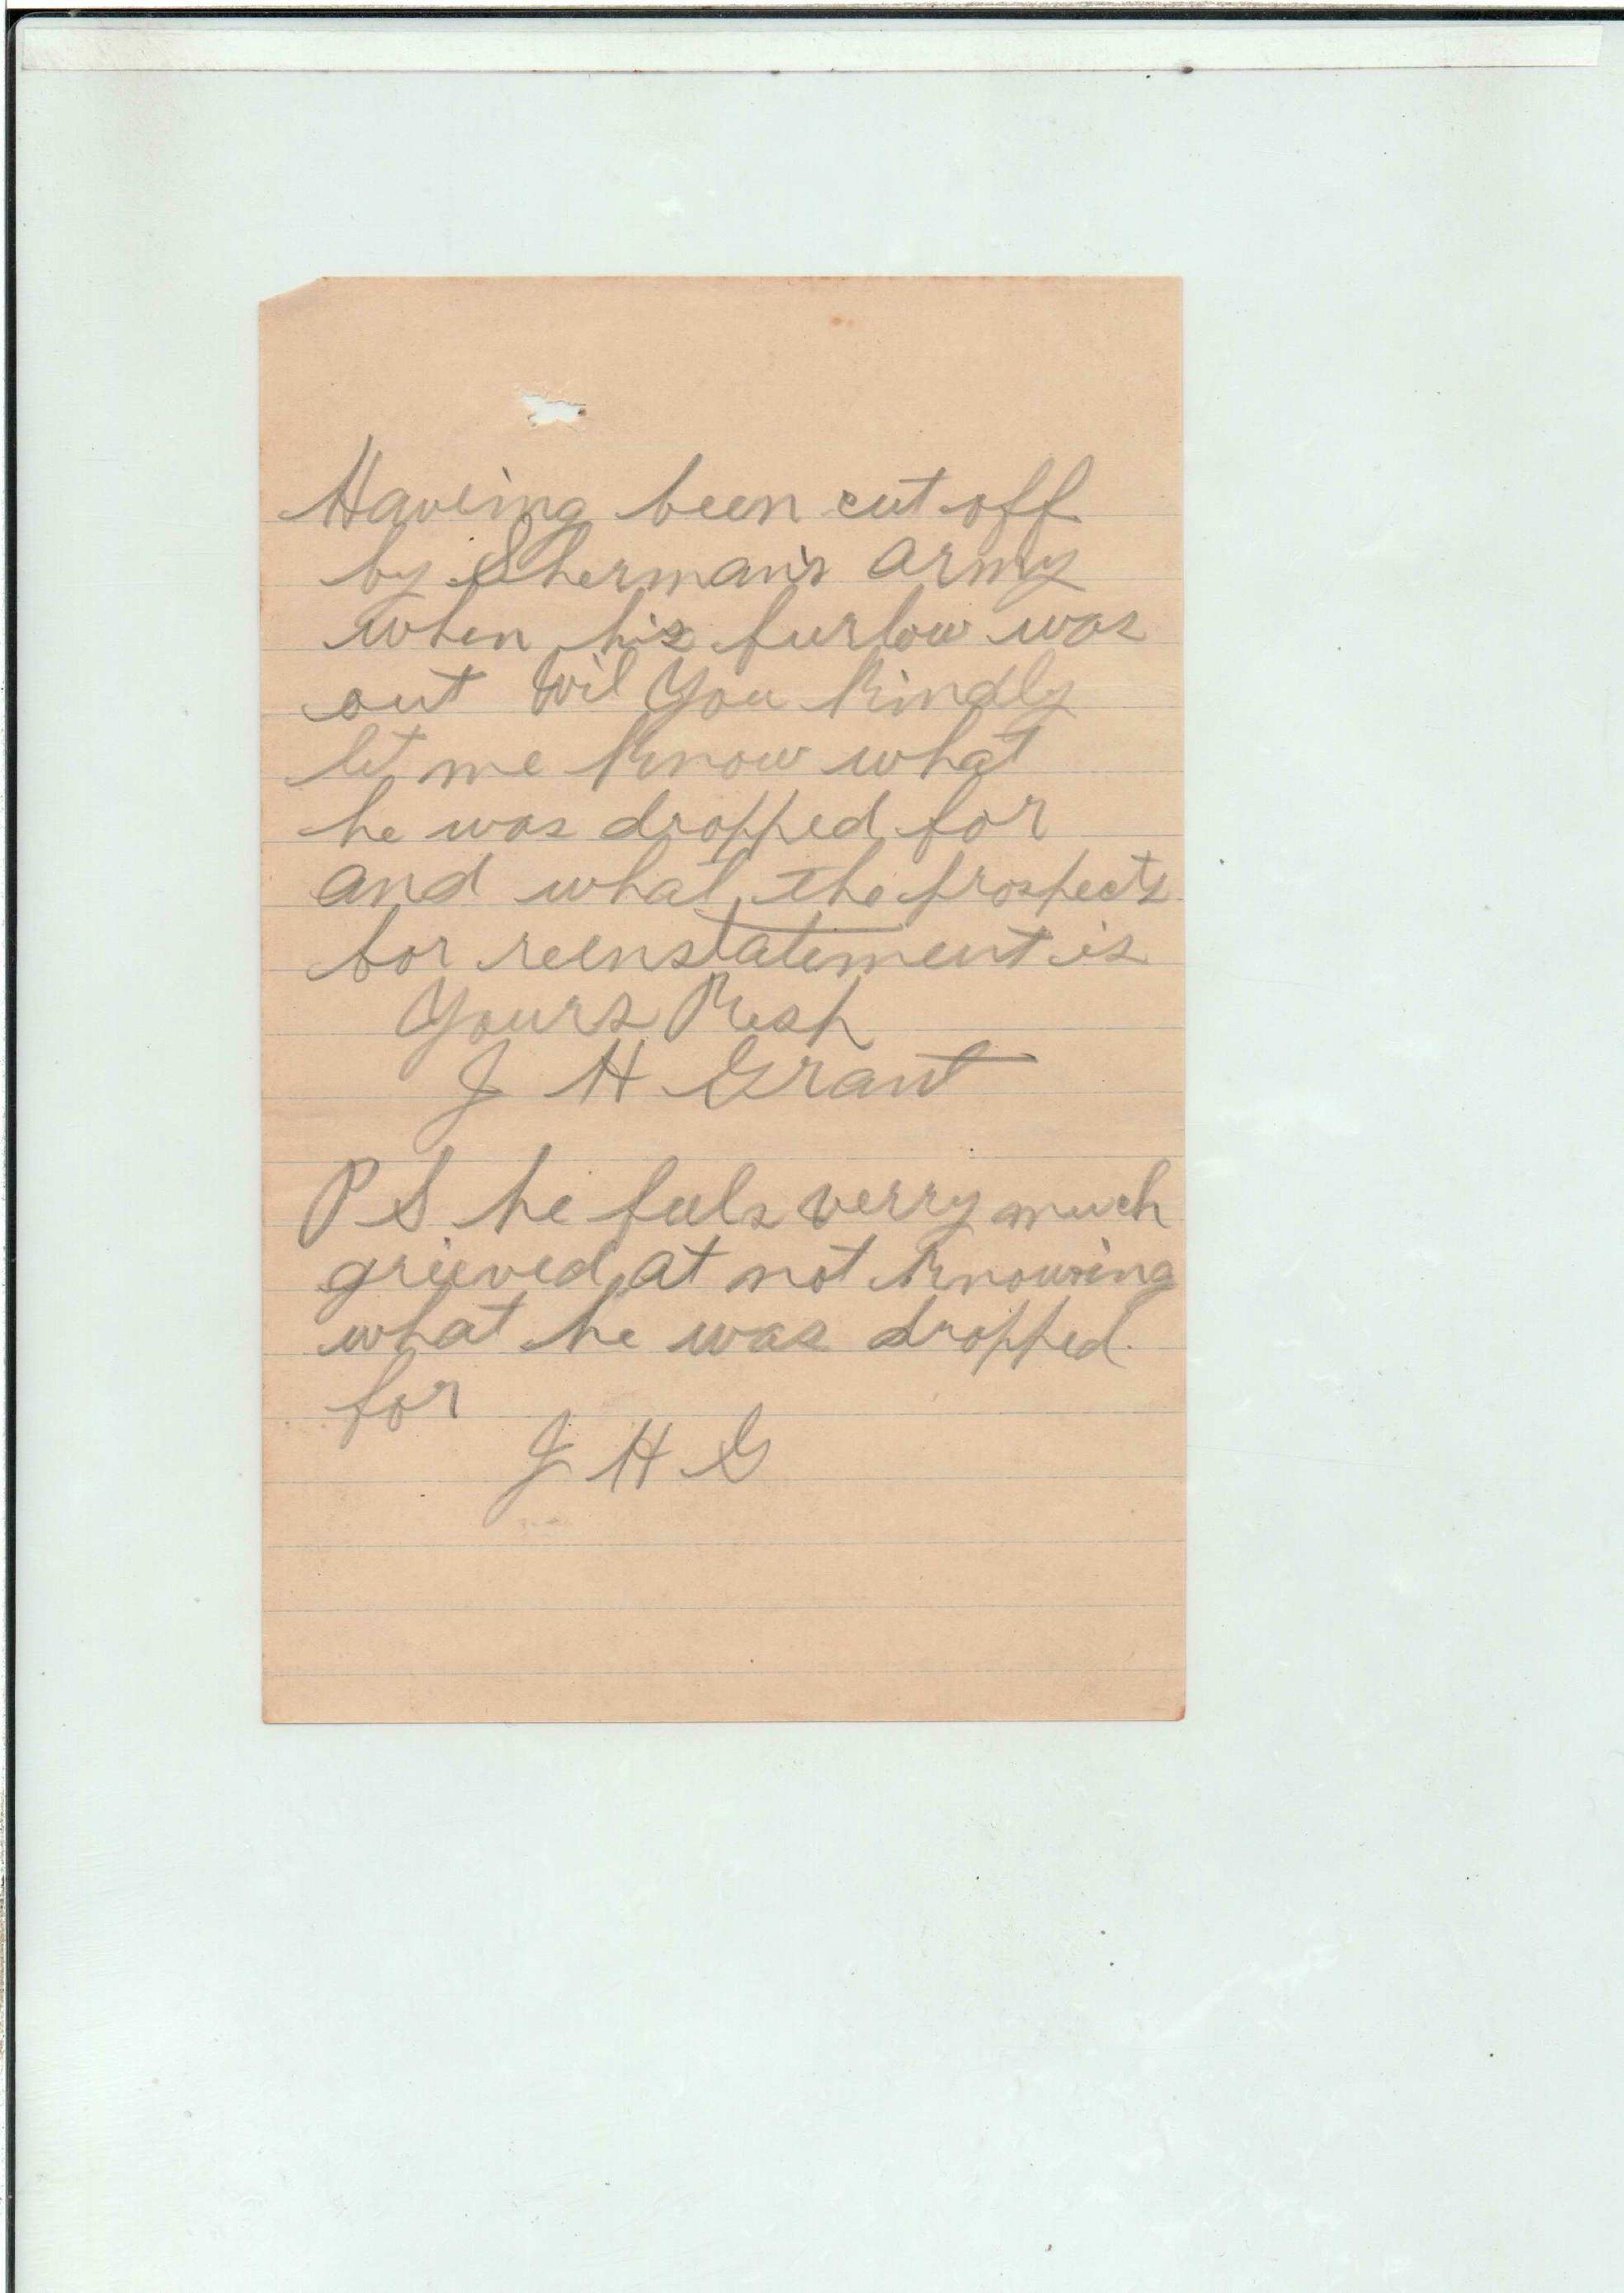 Haveing been cut off
by Sherman's army
when his furlow was
out Wil You Kindly
let me Know what
he was dropped for
and what the prospects
for reenstatement is
Yours Resp
J H Grant
P S he feels verry much
grieved at not Knowing
what he was dropped
for
J H G